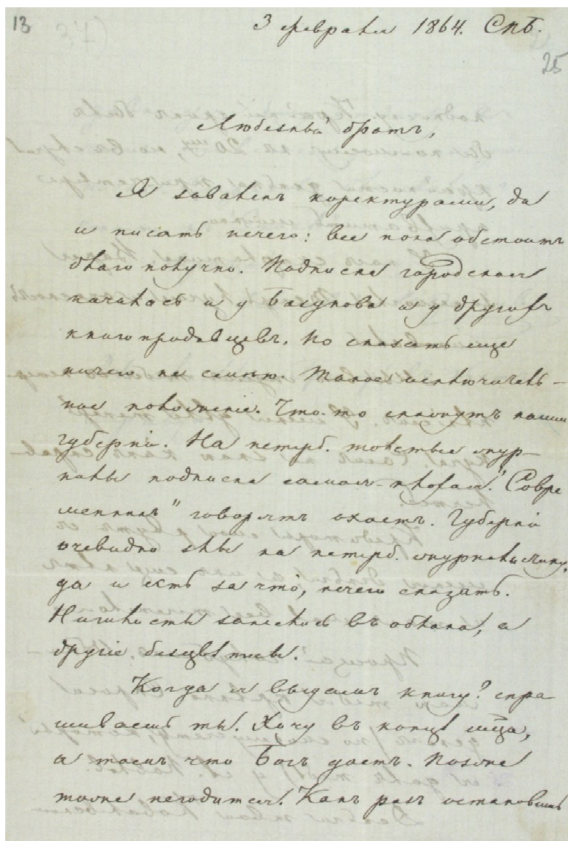 13
3 февраля 1864. Спб.
25
Любезный братъ,
Я заваленъ коректурами, да
и писать нечего: все пока обстоитъ
благополучно. Подписка городская
началась и у Базунова и у другихъ
книгопродавцевъ. Но сказать еще
ничего не смѣю. Такое исключитель-
ное положеніе. Что-то скажутъ наши
губерніи. На петерб. толстые жур-
налы подписка самая плохая. "Совре
менникъ" говорятъ Губерніи
очевидно злы на петерб. журналистику,
да и есть за что, нечего сказать.
Нигилисты залѣзли въ облака, а
другіе безцвѣтны.
Когда я выдамъ книгу? спра
шиваешь ты. Хочу въ концѣ м-ца,
а тамъ что Богъ дастъ. Позже
тоже негодится. Какъ разъ остановишь